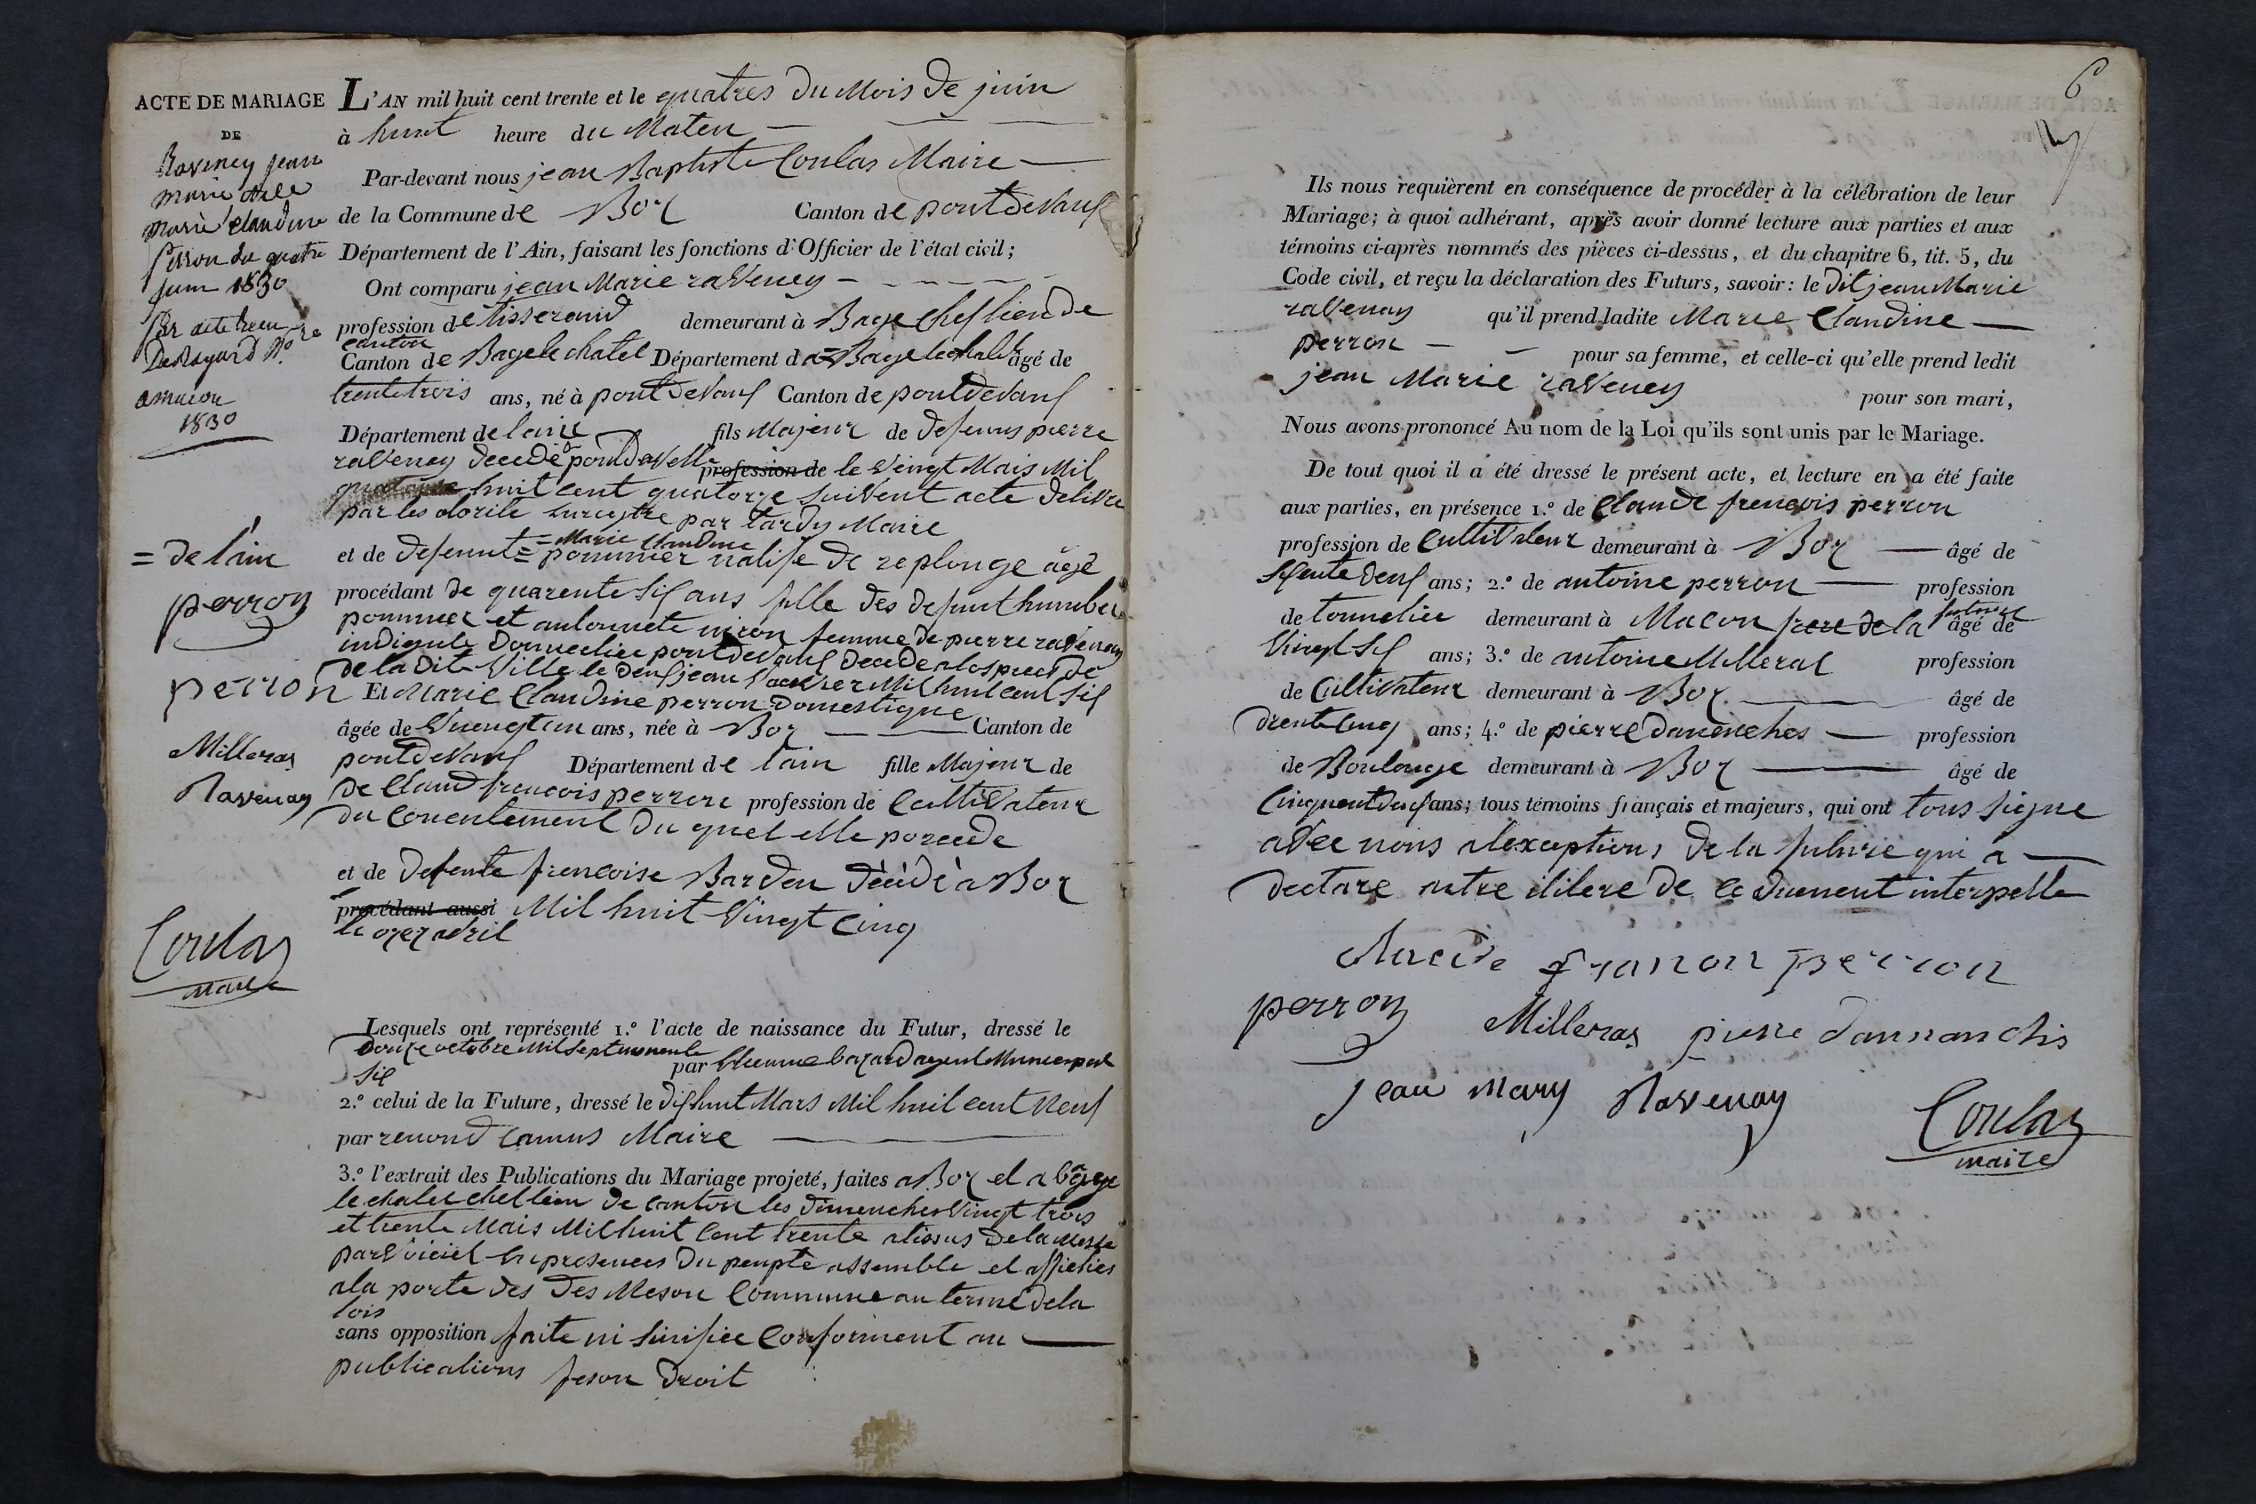 ACTE DE MARIAGE
DE
Raveney jean
marie et de
marie Claudine
perron du quatre
juin 1830
par acte recu
De Bugard No.re
a macon
1830
= de l'ain
perron
perron
Milleras
Ravenay
Coulas
maire
L'AN mil huit cent trente et le quatres du Mois de juin
à huit heure du Maten
Par-devant nous jean Baptiste Coulas Maire
de la Commune de Boz Canton de pontdevaux
Département de l'Ain, faisant les fonctions d'Officier de l'état civil;
Ont comparu jean Marie raveney
profession de tisserand demeurant à Bage Cheflieu de
canton
Canton de Bagelechatel Département d a= Bagelechatel âgé de
trentetrois ans, né à pontdevaux Canton de pontdevaux
Département de lain fils Majeur de defunns pierre
raveney decedé a pontdevelle profession de le vingt Mais Mil
huit cent quatorze suivent acte delivre
par les par tardy Maire
= Marie Claudine
et de defunnt = pommier natife de replonge âgé
procédant de quarente six ans fille des defunt humber
pommier et antonnete niron femme de pierre raveney
indigente Domeciliee pontdevaux Decede alospices de
de ladite Ville le deux jeanvier Mil huit cent six
Et Marie Claudine perron Domestique
âgée de Vuengtun ans, née à Boz Canton de
pontdevaux Département de lain fille Majeur de
de Claud frencois perrore profession de Cultivateur
du Conentement du quel elle porcede
et de defente frencoise Barden décédé a Boz
procédant aussi Mil huit Vingt Cinq
le ozez avril
Lesquels ont représenté 1.º l'acte de naissance du Futur, dressé le
Douze octobre Mil Sept
six par bazard agent Municipal
2.º celui de la Future, dressé le dixhuit Mars Mil huit cent Neuf
par remond Camus Maire
3.º l'extrait des Publications du Mariage projeté, faites a Boz et a bâge
le chatel chellieu de canton les dimenches Vingt trois
et trente Mais Mil huit Cent trente alissus de la Messe
en presences du peuple assemble et affiches
ala porte des des Meson Commune au terme dela
lois
sans opposition faite ni sinifiée Conforment au
publications feson Droit
6
Ils nous requièrent en conséquence de procéder à la célébration de leur
Mariage; à quoi adhérant, après avoir donné lecture aux parties et aux
témoins ci-après nommés des pièces ci-dessus, et du chapitre 6, tit. 5, du
Code civil, et reçu la déclaration des Futurs, savoir: le dit jean Marie
ravenay qu'il prend ladite Marie Claudine
perron pour sa femme, et celle-ci qu'elle prend ledit
jean Marie raveney pour son mari,
Nous avons prononcé Au nom de la Loi qu'ils sont unis par le Mariage.
De tout quoi il a été dressé le présent acte, et lecture en a été faite
aux parties, en présence 1.º de Claude frencois perron
profession de Cultivateur demeurant à Boz âgé de
Sixente deux ans; 2.º de antoine perron profession
de tonnelier demeurant à Macon frere de la futeure âgé de
Vingt Six ans; 3.º de antoine Milleral profession
de Cultivateur demeurant à Boz âgé de
trente Cinq ans; 4.º de pierre danenches profession
de Boulonge demeurant à Boz âgé de
Cinquent deux ans; tous témoins français et majeurs, qui ont tous signe
avec nous alexception de la futuré qui a
dectare netre ilitere de ce duement interpelle
Claude franon perron
perron
Milleras pierre dannanchis
jean mary Ravenay
Coulas
maire